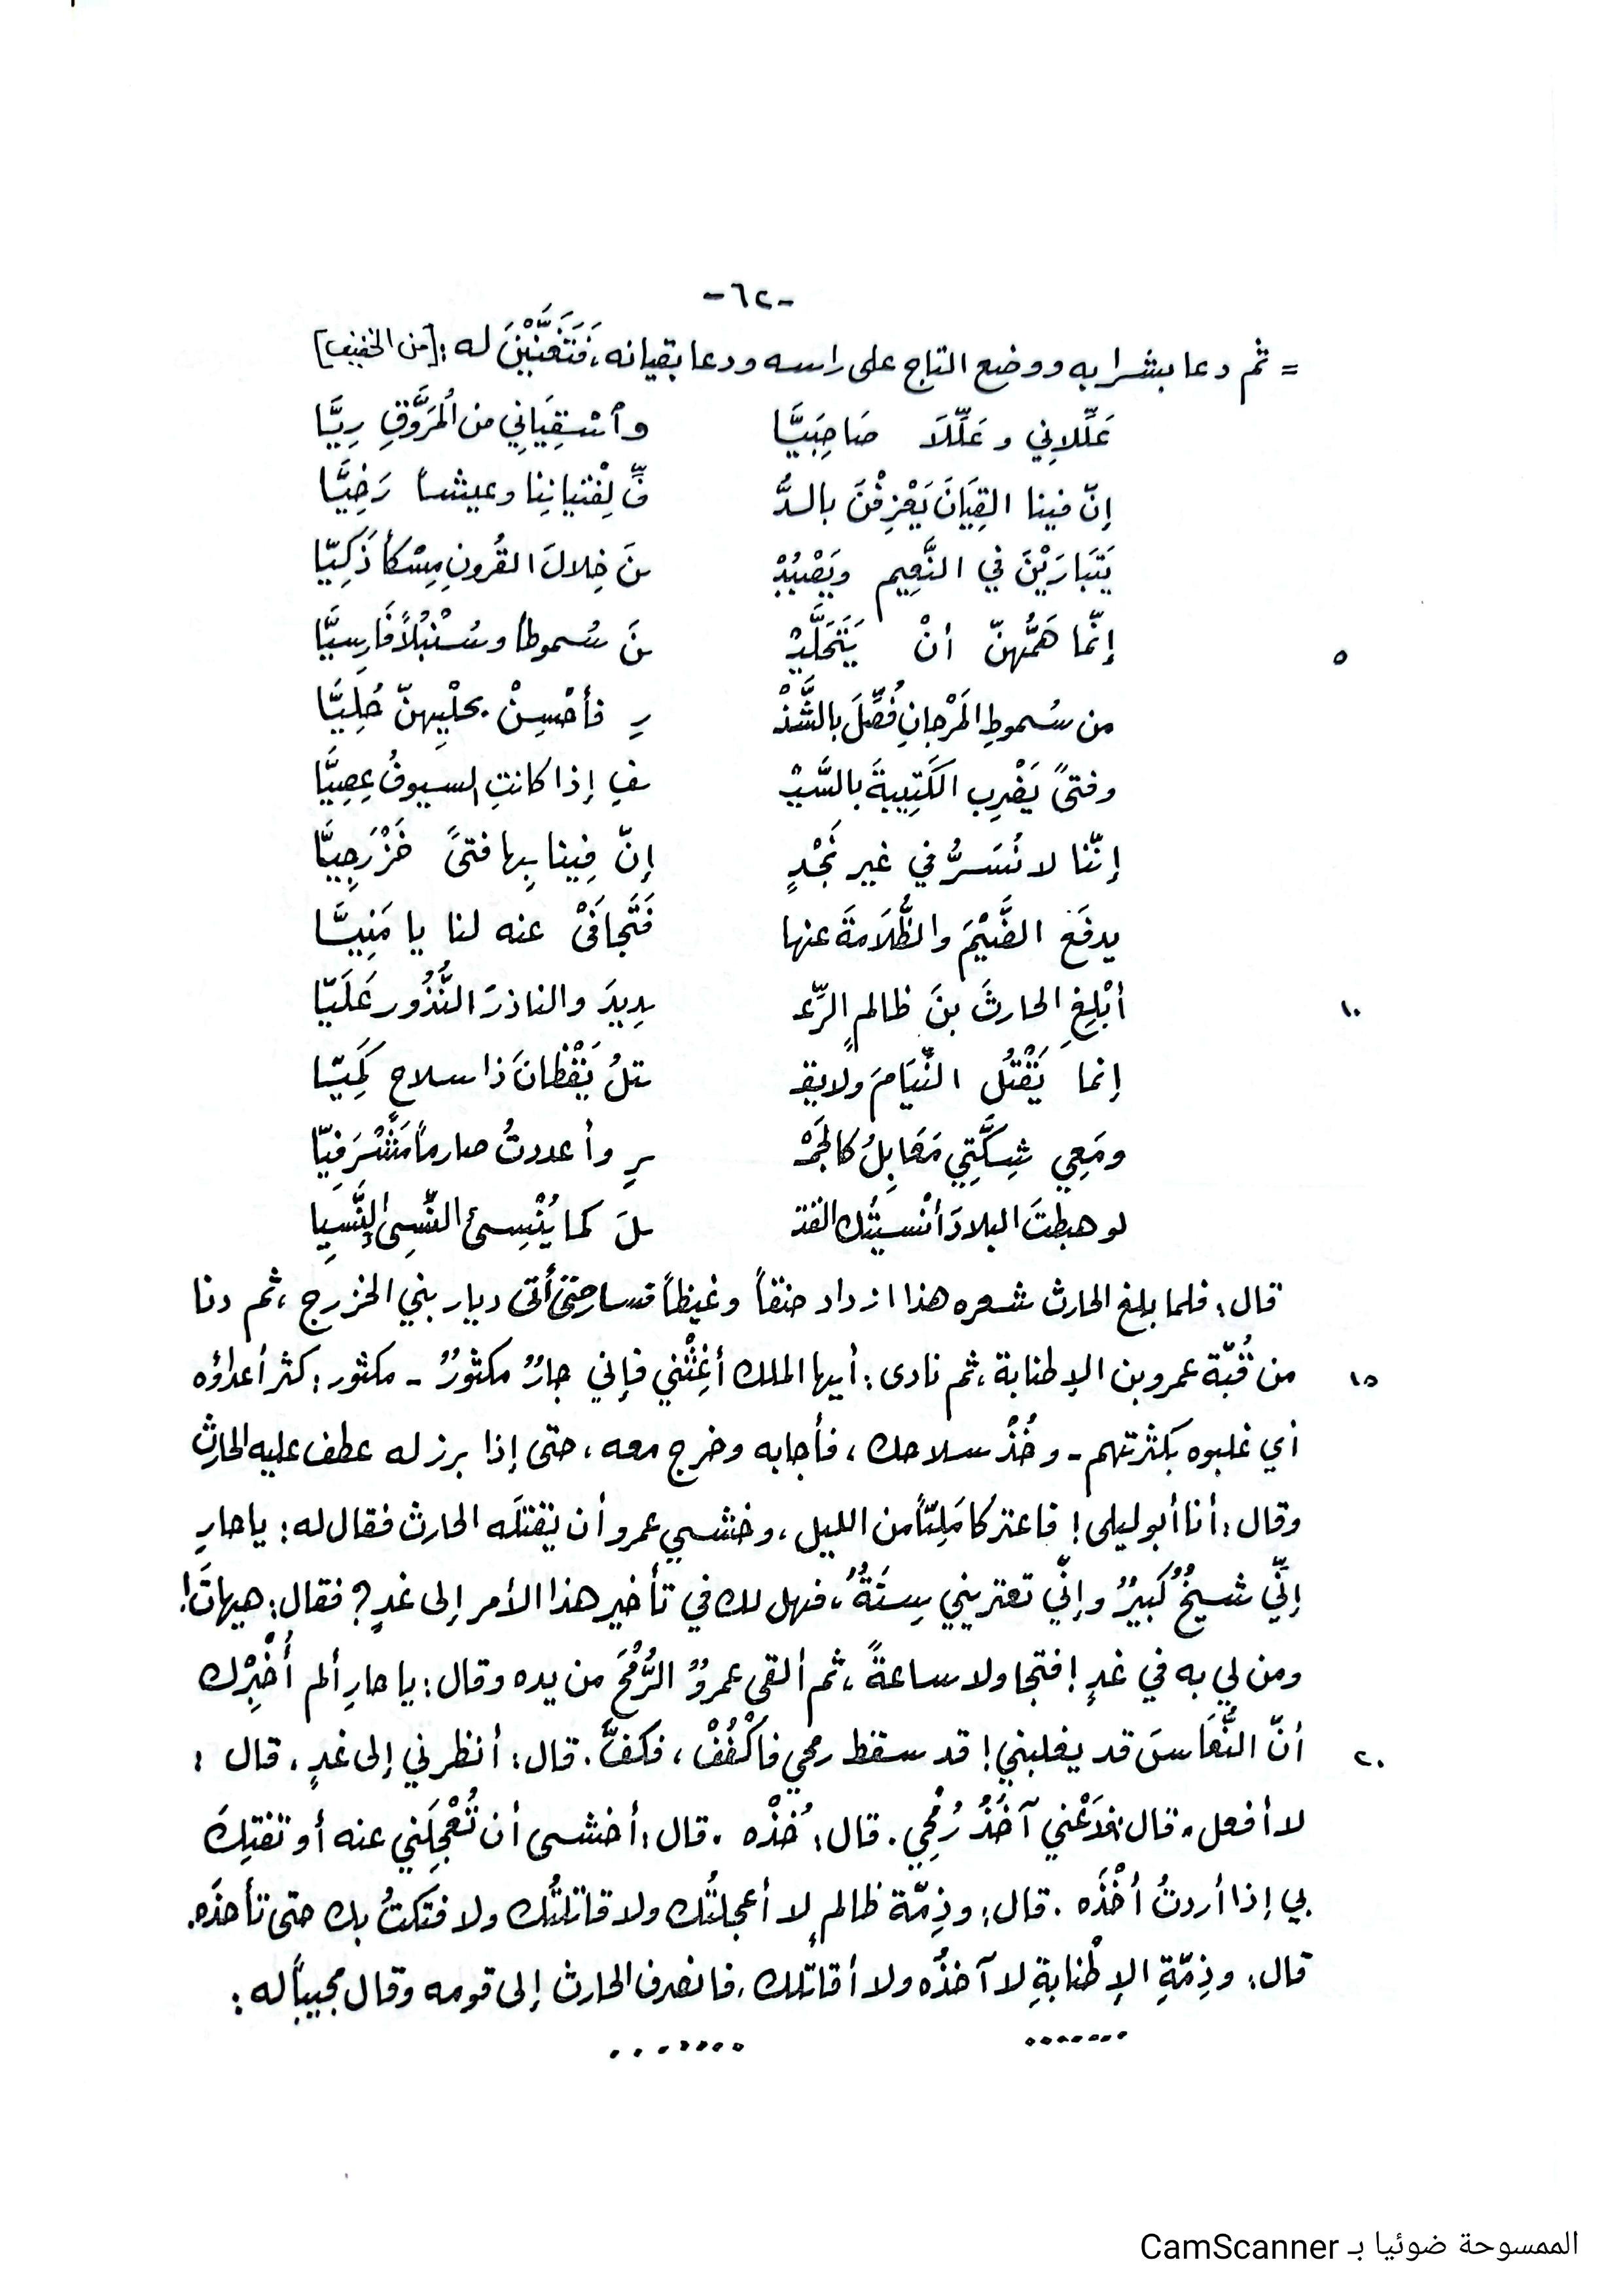 -٦٢-
= ثم دعا بشرابه ووضع التاج على راسه ودعا بقيانه، فَتَغَنَّيْنَ له: [من الخفيف]
عَلِّلانِي وعَلِّلَا صَاحِبَيَّا وأسْقِيَانِي من المُرَوَّقِ رِيَّا
إنّ فينا القِيَانَ يَعْزِفْنَ بالدُّ فِّ لِفْتيانِنا وعيشاً رَخِيَّا
يَتَبَارَيْنَ في النَّعِيم ويَصْبُبْ نَ خِلالَ القُرونِ مِسْكاً ذَكِيّا
إنّما هَمُّهنّ أنْ يَتَحَلَّيْ نَ سُموطاً وسُنْبُلاً فَارِسيَّا ٥
من سُموطِ المَرْجانِ فُصِّلَ بالشَّذْ رِ فأحْسِنْ بحلْيِهنّ حُلِيَّا
وفتىً يَضْرِب الكَتِيبةَ بالسَّيْ فِ إذا كانتِ السيوفُ عِصِيَّا
إنّنا لا نُسَرُّ في غير نَجْدٍ إنّ فِينا بِها فتىً خَزْرَجِيَّا
يدفَع الضَّيْمَ والظُّلَامةَ عنها فَتَجافَىْ عنه لنا يا مَنِيَّا
أبْلِغِ الحارثَ بنَ ظالمٍ الرِّعْ دِيدَ والناذرَ النُّذُور عَلَيّا ١٠
إنما يَقْتُل النِّيَامَ ولا يق تلُ يَقْظانَ ذا سلاح كَمِيّا
ومَعِي شِكَّتِي مَعَابِلُ كالجَمْ رِ وأعددتُ صارماً مَشْرَفِيّا
لو هبطتَ البلادَ أنْسيتُك القت لَ كما يُنْسِئ النَّسِئ النَّسِيا
قال: فلما بلغ الحارث شعره هذا ازداد حنقاً وغيظاً فسار حتى أتى ديار بني الخزرج، ثم دنا
من قُبّة عمرو بن الإطنابة، ثم نادى: أيها الملك أغِثْني فإني جارٌ مكثورٌ - مكثور: كثر أعداؤه ١٥
أي غلبوه بكثرتهم - وخُذْ سلاحك، فأجابه وخرج معه، حتى إذا برز له عطف عليه الحارث
وقال: أنا أبو ليلى! فاعتركا مَلِيّاً من الليل، وخشي عمرو أن يقتلَه الحارث فقال له: يا حارِ
إنّي شيخٌ كبيرٌ وإنّي تعتريني سِنَةٌ، فهل لك في تأخير هذا الأمر إلى غدٍ؟ فقال: هيهاتَ!
ومن لي به في غدٍ! فتجاولا ساعةً، ثم ألقى عمروٌ الرُّمْحَ من يده وقال: يا حارِ ألم أُخْبِرْك
أنّ النُّعَاسَ قد يغلبني! قد سقط رمحي فاكْفُفْ، فكفَّ. قال: أنظرني إلى غدٍ. قال: ٢٠
لا أفعل. قال: فدَعْني آخَذْ رُمْحِي. قال: خُذْه. قال: أخشى أن تُعْجِلَني عنه أو تفتِكَ
بي إذا أردتُ أخْذَه. قال: وذِمّة ظالمٍ لا أعجلتُك ولا قاتلتُك ولا فتكتُ بك حتى تأخذَه.
قال: وذِمّةِ الإطْنابةِ لا آخذُه ولا أقاتلك. فانصرف الحارث إلى قومه وقال مجيباً له:
....... .......
الممسوحة ضوئيا بـ CamScanner